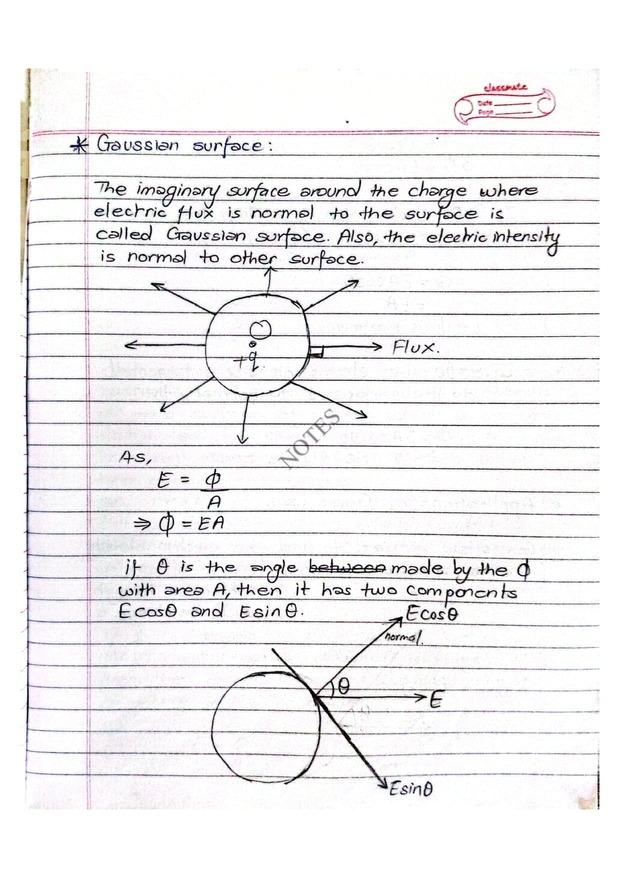 classmate
Date
Page
* Gaussian surface:
The imaginary surface around the charge where
electric flux is normal to the surface is
called Gaussian surface. Also, the electric intensity
is normal to other surface.
Flux.
+q
NOTES
As,
E = ϕ/A
⇒ ϕ = EA
if θ is the angle between made by the ϕ
with area A, then it has two components
Ecosθ and Esinθ.
Ecosθ
normal.
θ
E
Esinθ